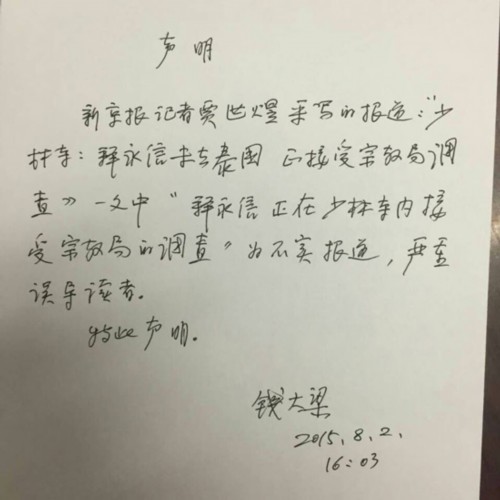 声明
新京报记者贾世煜采写的报道:"少
林寺:释永信未去泰国 正接受宗教局调
查》一文中"释永信正在少林寺内接
受宗教局的调查"为不实报道,严重
误导读者。
特此声明.
钱大梁
2015.8.2.
16:03